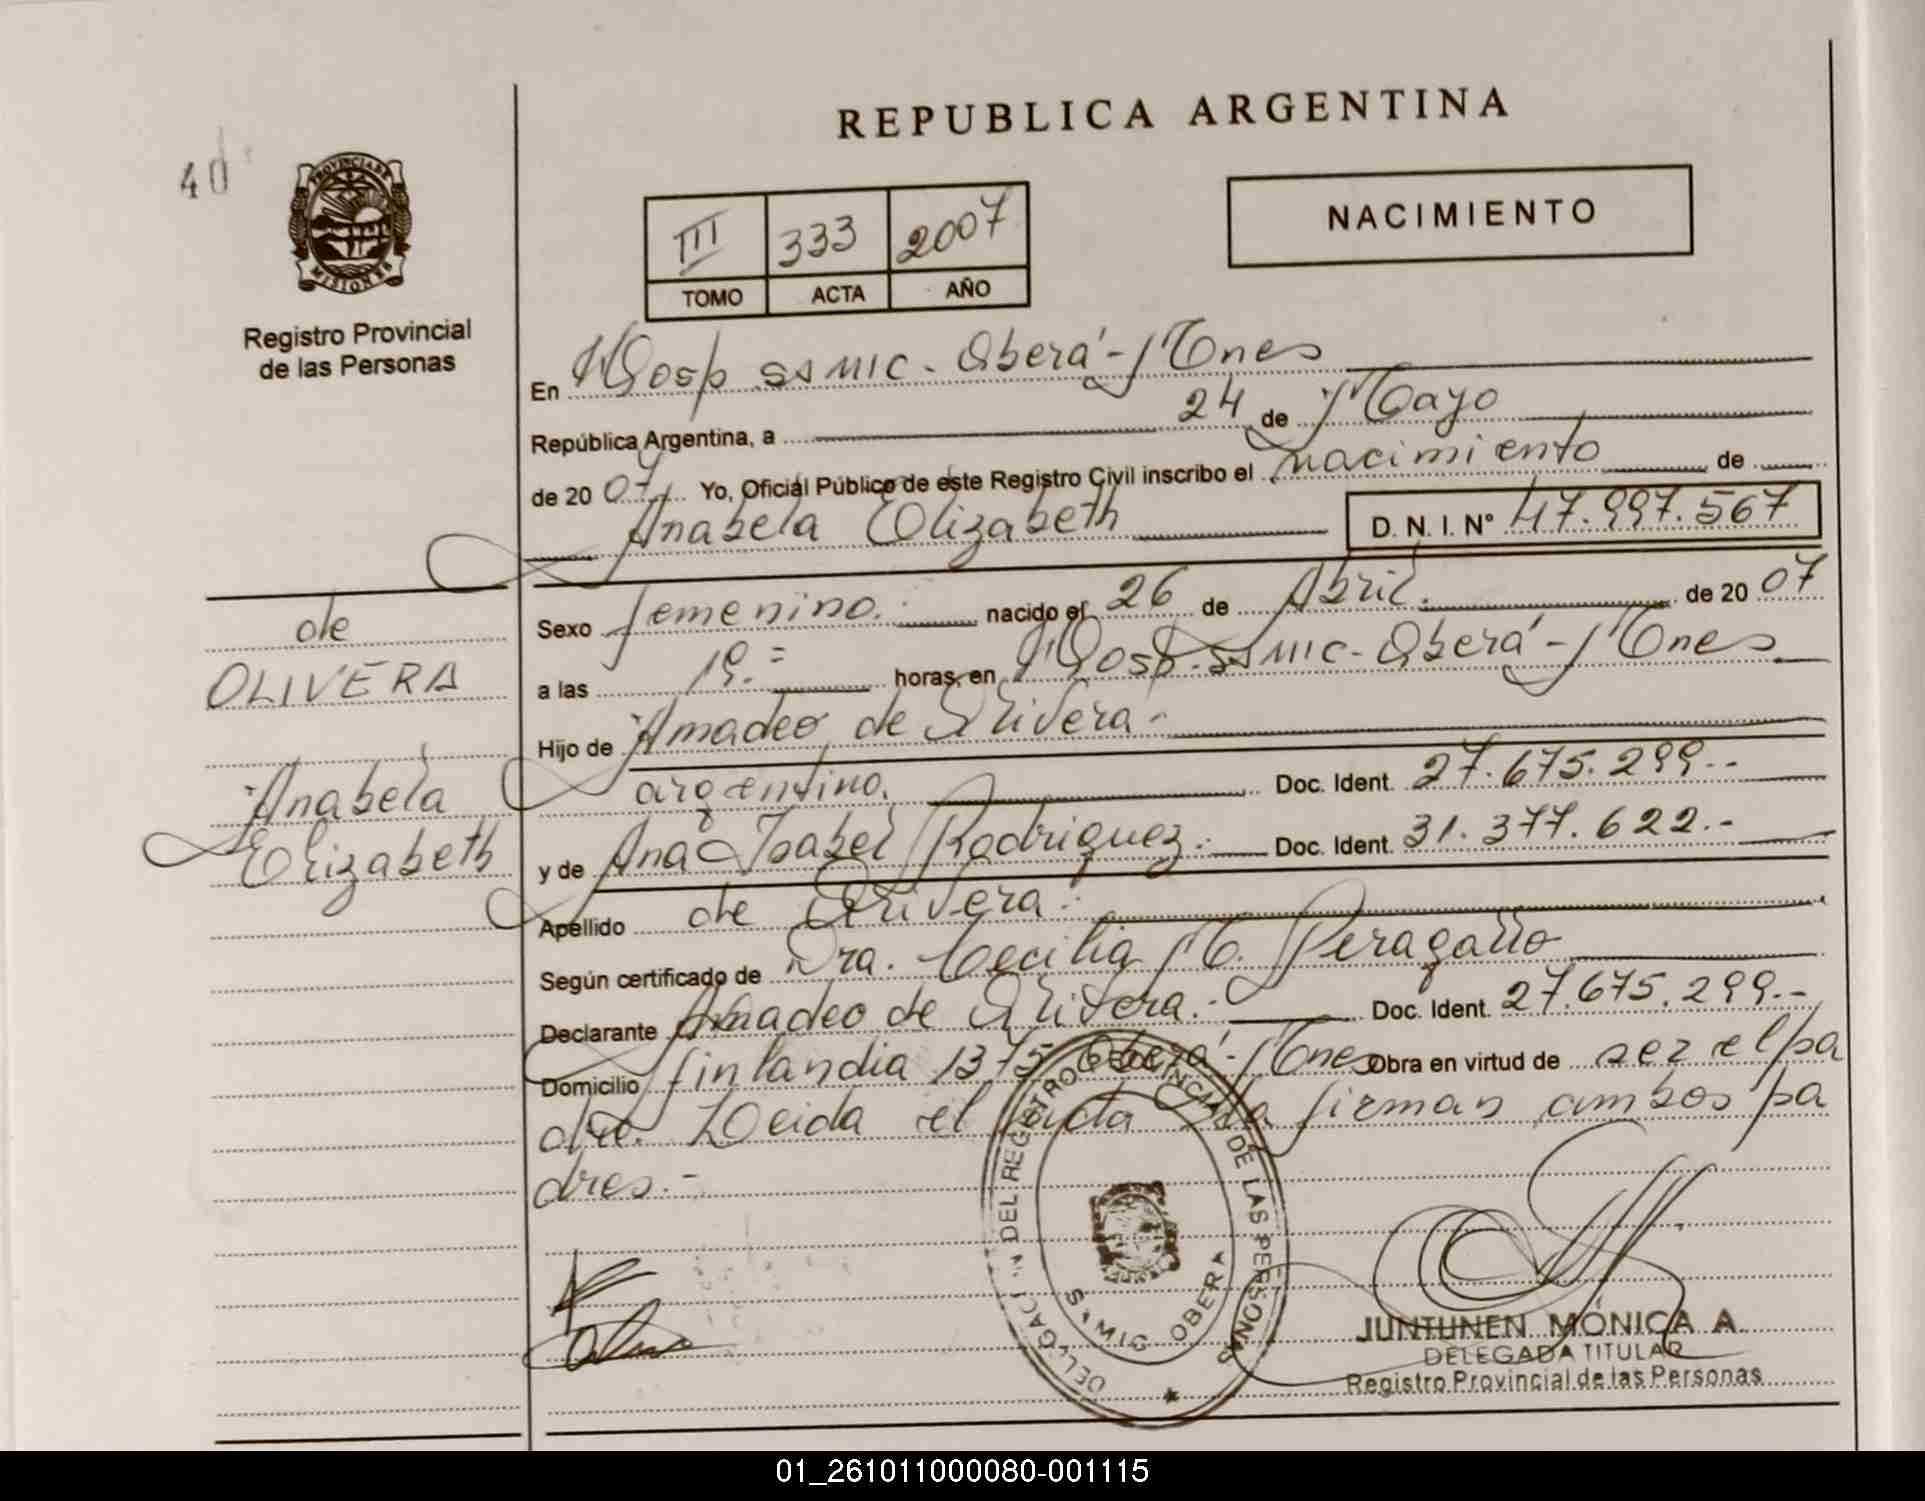 REPUBLICA ARGENTINA
40
PROVINCIA DE
MISIONES
Registro Provincial
de las Personas
III 333 2007
TOMO ACTA AÑO
NACIMIENTO
En Hosp SSMIC. Oberá - Mnes
República Argentina, a 24 de Mayo
de 20 07 Yo, Oficial Público de este Registro Civil inscribo el nacimiento de
Anabela Elizabeth D. N. I. N° 47.997.567
de
OLIVERA
Anabela
Elizabeth
Sexo femenino. nacido el 26 de Abril. de 20 07
a las 19.= horas, en Hosp. SSMIC - Oberá - Mnes
Hijo de Amadeo de Olivera -
argentino. Doc. Ident. 27.675.299.-
y de Ana Isabel Rodriguez. Doc. Ident. 31.377.622.-
Apellido de Olivera.
Según certificado de Dra. Cecilia M. Peragallo
Declarante Amadeo de Olivera. Doc. Ident. 27.675.299.-
Domicilio Finlandia 1375 Oberá - Mnes Obra en virtud de ser el pa
dre. Leida el acta la firman ambos pa
dres.-
DEL REGISTRO PROVINCIAL DE LAS PERSONAS
OBERA
JUNTUNEN MÓNICA A.
DELEGADA TITULAR
Registro Provincial de las Personas
01_261011000080-001115